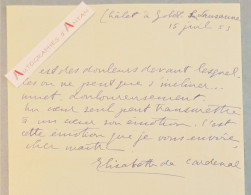 Chalet à Gobet s. Lausanne
15 juil. 51
Il est des douleurs devant lesquel-
les on ne peut que s'incliner...
muet, douloureusement.
Un cœur seul peut transmettre
à un autre son émotion. C'est
cette émotion que je vous envoie,
cher maître
Elisabeth de